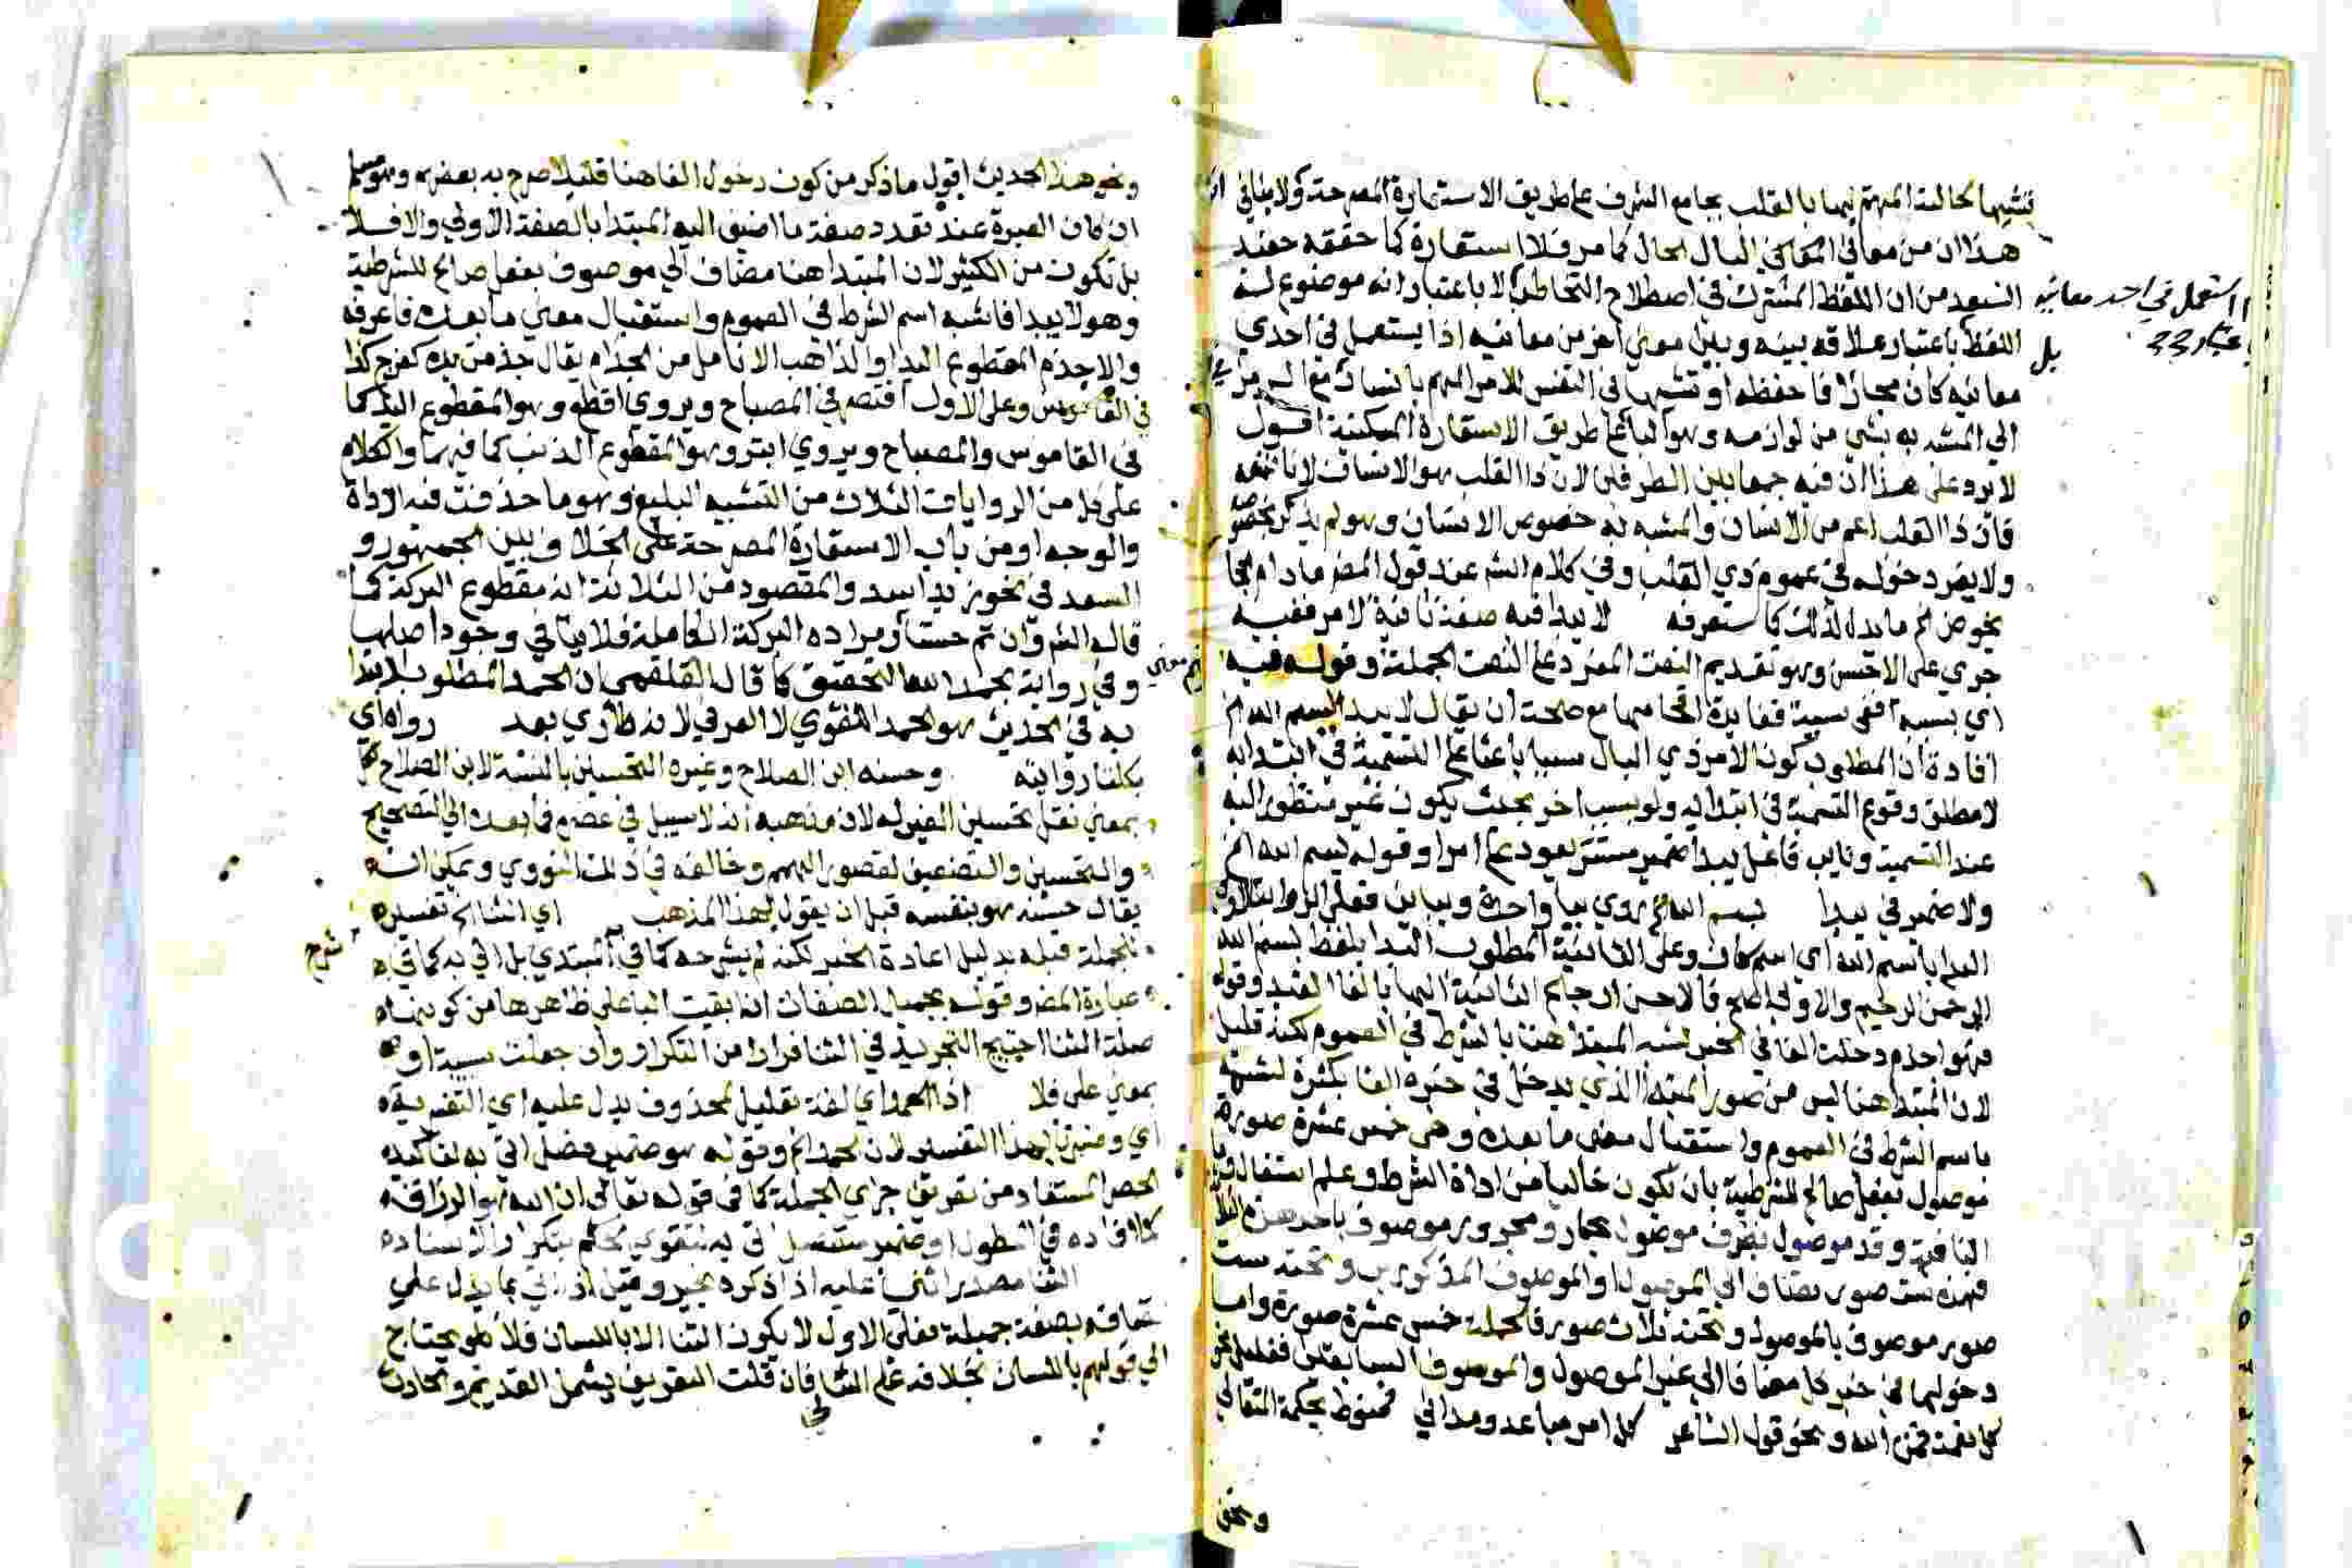 تشبيها لحالته المهتم بها بالقلب بجامع الشرف على طريق الاستعارة المصرحة ولا ينافي
هذا ان من معاني البال الحال كما مر فلا استعارة كما حققه حفيد
السعد من ان اللفظ المشترك في اصطلاح التخاطب لا باعتبار انه موضوع لـه
استعمل في احد معانيه
اللفظ باعتبار علاقة بينه وبين معنى اخر من معانيه اذا يستعمل في احدي
بل
معانيه كان مجازا فاحفظه او تشبيها في النفس للامر المهم بانسان
الي المشبه به بشي من لوازمه وهو البال على طريق الاستعارة المكنية اقول
لا يرد على هذا ان فيه جمعا بين الطرفين لان ذا القلب هو الانسان لانا نمنعه
فان ذا القلب اعم من الانسان والمشبه به خصوص الانسان وهو لم يذكر بخصوصه
ولا يضر دخوله في عموم ذي القلب وفي كلام الش عند قول المص مادام الحجا
يخوض الخ ما يدل لذلك كما ستعرفه لا يبدا فيه صفة ثانية لامر ففيه
جري على الاحسن وهو تقديم النعت المفرد على النعت الجملة وقوله فيه
اي بسببه ففي سببية ففايدة اقحامها مع صحة ان يقال لا يبدا ببسم الله الخ
افادة ان المطلوب كون الامر ذي البال سببا باعثا على التسمية في ابتدايه
لا مطلق وقوع التسمية في ابتدايه ولو بسبب اخر بحيث يكون غير منظور اليه
عند التسمية ونايب فاعل يبدا ضمير مستتر يعود على امر او قوله ببسم الله الخ
ولا ضمير في يبدا ببسم الله الخ روي بيا واحدة وبباين فعلى الرواية الاولى
البدا باسم الله اي اسم كان وعلى الثانية المطلوب البدا بلفظ بسم الله
الرحمن الرحيم
فهو اجذم دخلت الفا في الخبر لشبه المبتدا هنا بالشرط في العموم لكنه قليل
لان المبتدا هنا ليس من صور المبتدا الذي يدخل في خبره الفا بكثرة لشبهه
باسم الشرط في العموم واستقبال معنى ما بعده وهي خمس عشرة صورة
موصول بفعل صالح للشرطية بان يكون خاليا من اداة الشرط وعلم استقبال
النافية وقد موصول بظرف موصول بجار ومجرور موصوف باحد هذه الثلاثة
فهذه ست صور مضاف الي الموصول او الموصوف المذكورين وتحته ست
صور موصوف بالموصول وتحته ثلاث صور فالجملة خمس عشرة صورة واما
دخولها في خبر كل مضافا الي غير الموصول والموصوف السابقين فقليل نحو
كل نعمة فمن الله ونحو قول الشاعر كل امر مباعد ومداني فمنوط بحكمة المتعالي
ونحو
ونحو هذا الحديث اقول ما ذكر من كون دخول الفا هنا قليلا صرح به بعضهم وهو مسلم
ان كان العبرة عند تعدد صفة ما اضيف اليه المبتدا بالصفة الاولي والا فلا
بل تكون من الكثير لان المبتدا هنا مضاف الي موصوف بفعل صالح للشرطية
وهو لا يبدا فاشبه اسم الشرط في العموم واستقبال معنى ما بعده فاعرفه
والاجذم المقطوع اليد او الذاهب الانامل من الجذام يقال جذمت يده كفرح كذا
في القاموس وعلى الاول اقتصر في المصباح ويروي اقطع وهو المقطوع اليد كما
في القاموس والمصباح ويروي ابتر وهو المقطوع الذنب كما فيهما والكلام
على كل من الروايات الثلاث من التشبيه البليغ وهو ما حذفت فيه الاداة
والوجه او من باب الاستعارة المصرحة على الخلاف بين الجمهور و
السعد في نحو زيد اسد والمقصود من الثلاثة انه مقطوع البركة كما
قاله الش وان تم حسا ومراده البركة الكاملة فلا ينافي وجود اصلها
وفي رواية بحمد الله التحقيق كما قال القلقمي ان الحمد المطلوب الابتدا
به في الحديث هو الحمد اللغوي لا العرفي لانه طاري بعد رواه اي
بكلتا روايتيه وحسنه ابن الصلاح وغيره التحسين بالنسبة لابن الصلاح
بمعنى نقل تحسين الغير له لان مذهبه انه لا سبيل في عصره فما بعده الي التصحيح
والتحسين والتضعيف لقصور الهمم وخالفه في ذلك النووي ويمكن ان
يقال حسنه هو بنفسه قبل ان يقول بهذا المذهب اي انشا الخ تفسير
للجملة قبله بدليل اعادة الخبر لكنه لم يشرحه كما في ابتدي بل اتي به كما في
شرح
عبارة المص وقوله بجميل الصفات ان بقيت البا على ظاهرها من كونها
صلة الثنا احتيج التجريد في الثنا فرارا من التكرار وان جعلت سببية او
بمعنى على فلا اذ الحمد اي لغة تعليل لمحذوف يدل عليه اي التفسيرية
اي وفسرنا بهذا التفسير لان الحمد الخ وقوله هو ضمير فصل اتي به لتاكيد
الحصر المستفاد من تعريف جزاي الجملة كما في قوله تعالى ان الله هو الرزاق
كما افاده في المطول او ضمير منفصل اتي به لتقوي الحكم بتكرار الاسناد
الثنا مصدر اثني عليه اذا ذكره بخير وقيل اذا اتي بما يدل على
اتصافه بصفة جميلة فعلى الاول لا يكون الثنا الا باللسان فلا يحتاج
الي قولهم باللسان بخلافه على الثاني فان قلت التعريف يشمل القديم والحادث